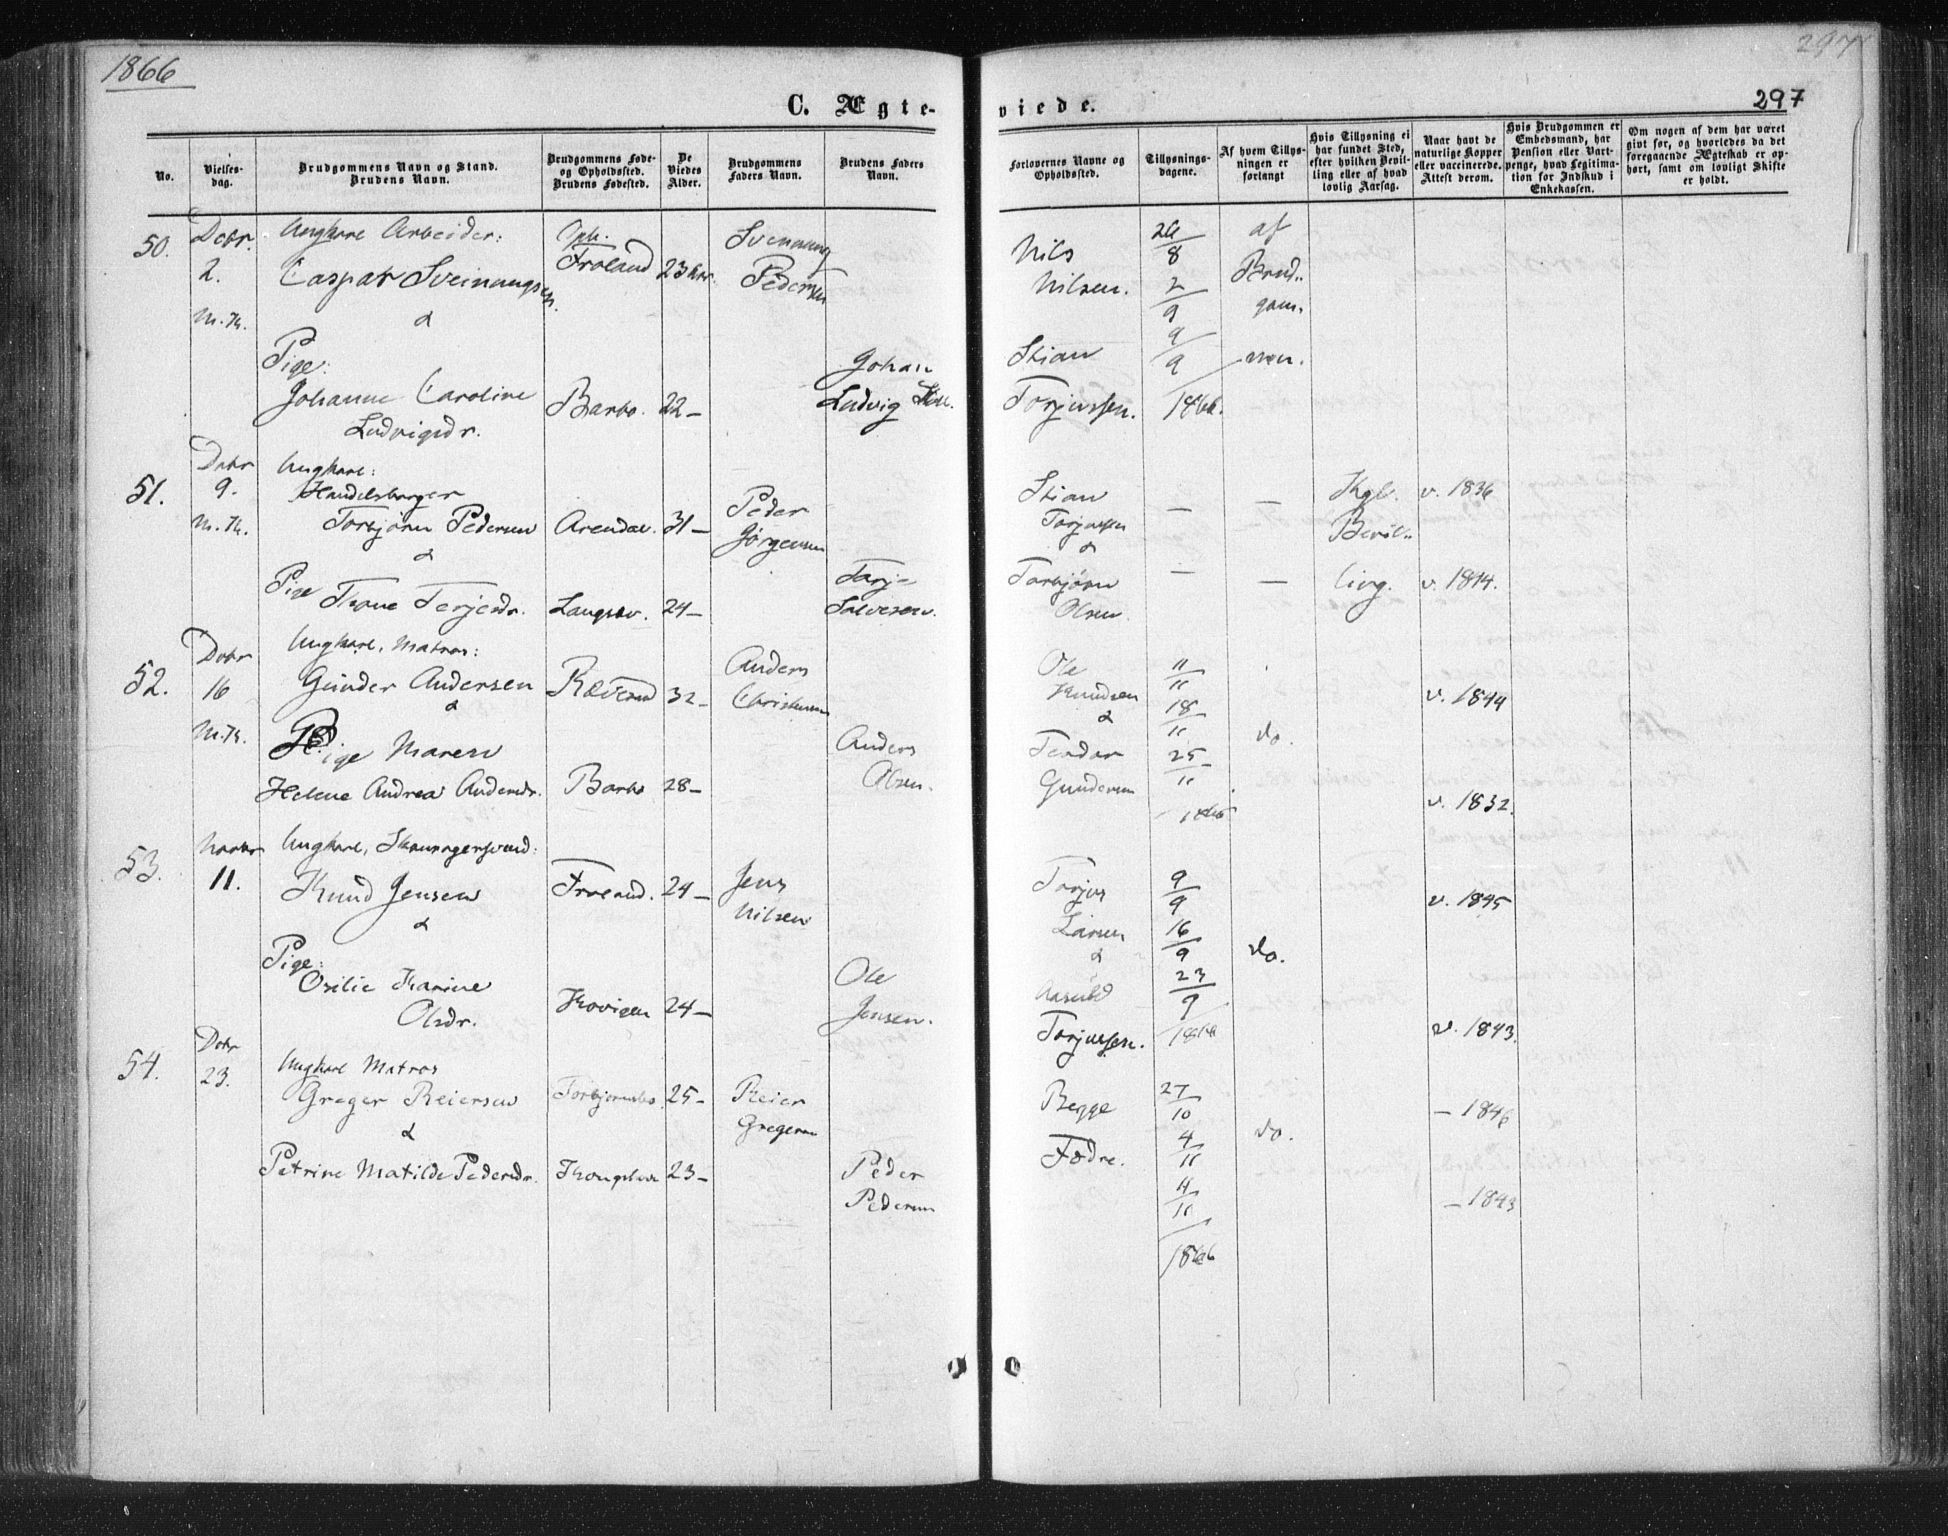 1866
297
C. Ægte-
viede.
297
No.
Vielses-
dag.
Brudgommens Navn og Stand.
Brudens Navn.
Brudgommens Føde-
og Opholdssted.
Brudens Fødested.
De
Viedes
Alder.
Brudgommens
Faders Navn.
Brudens Faders
Navn.
Forlovernes Navne og
Opholdssted.
Tillysnings-
dagene.
Af hvem Tillys-
ningen er
forlangt
Hvis Tillysning ei
har fundet Sted,
efter hvilken Bevil-
ling eller af hvad
lovlig Aarsag.
Naar havt de
naturlige Kopper
eller vaccinerede.
Attest derom.
Hvis Brudgommen er
Embedsmand, har
Pension eller Vart-
penge, hvad Legitima-
tion for Indskud i
Enkekassen.
Om nogen af dem har været
givt før, og hvorledes da det
foregaaende Ægteskab er op-
hørt, samt om lovligt Skifte
er holdt.
50.
Decbr.
2.
M. Th.
Ungkarl Arbeider:
Caspar Sveinungsen.
&
Pige:
Johanne Caroline
Ludvigsdr.
Froland
Barbo.
23 Aar.
22 —
Svennung
Pedersen
Johan
Ludvig
Nils
Nilsen.
Stian
Torjussen.
26/8
2/9
9/9
1866.
af
Brud-
gom-
men.
51.
Decbr
9.
M. Th.
Ungkarl:
Handelsborger
Torbjørn Pedersen
&
Pige
Thone Terjesdr.
Arendal.
Langsev.
31 —
24 —
Peder
Jørgensen
Terje
Salvesen.
Stian
Torjussen
&
Torbjørn
Olsen.
—
—
—
—
Kgl.
Bevil-
ling.
v. 1836
v. 1844.
52.
Decbr
16
M. Th.
Ungkarl, Matros:
Gunder Andersen
&
Pige Maren
Helene Andrea Andersdr.
Rævesand
Barbo
32 —
28 —
Anders
Christensen
Anders
Olsen.
Ole
Knudsen
&
Tendar
Gundersen
11/11
18/11
25/11
1866
do.
v. 1844
v. 1832.
53.
Novbr
11.
Ungkarl, Skomagersvend:
Knud Jensen
&
Pige:
Osilie Karine
Olsdr.
Froland.
24 —
24 —
Jens
Nilsen
Ole
Jensen.
Torjus
Larsen
&
Aasuld
Torjussen.
9/9
16/9
23/9
1866
do.
v. 1845
v. 1843.
54.
Decbr
23.
Ungkarl Matros
Greger Reiersen
&
Petrine Matilde Pedersdr.
Torbjørnsbo
Kongshavn
25 —
23 —
Reier
Gregersen
Peder
Pedersen
Begge
Fædre.
27/10
4/11
11/10
1866
do.
— 1846
— 1843